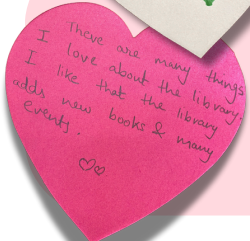 There are many things
I love about the library.
I like that the library
adds new books & many
events.